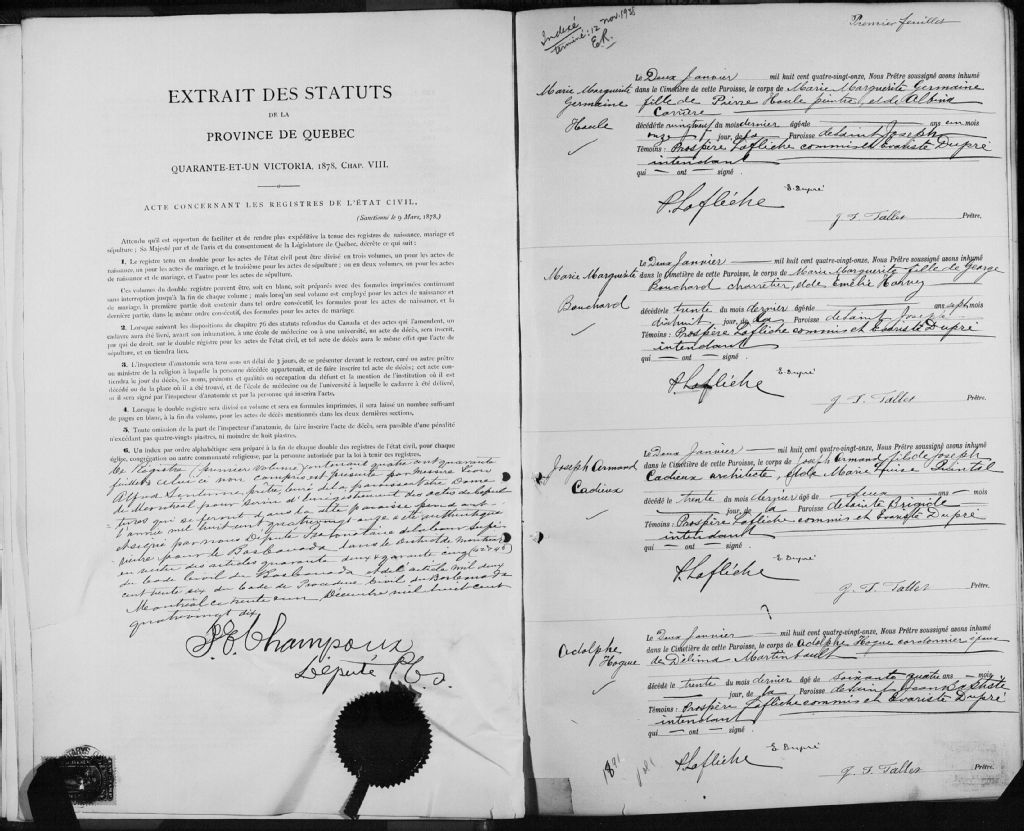 EXTRAIT DES STATUTS
DE LA
PROVINCE DE QUEBEC
QUARANTE-ET-UN VICTORIA, 1878, CHAP. VIII.
ACTE CONCERNANT LES REGISTRES DE L'ÉTAT CIVIL,
(Sanctionné le 9 Mars, 1878.)
Attendu qu'il est opportun de faciliter et de rendre plus expéditive la tenue des registres de naissance, mariage et
sépulture ; Sa Majesté par et de l'avis et du consentement de la Législature de Québec, décrète ce qui suit :
1. Le registre tenu en double pour les actes de l'état civil peut être divisé en trois volumes, un pour les actes de
naissance, un pour les actes de mariage, et le troisième pour les actes de sépulture ; ou en deux volumes, un pour les actes
de naissance et de mariage, et l'autre pour les actes de sépulture.
Ces volumes du double registre peuvent être, soit en blanc, soit préparés avec des formules imprimées continuant
sans interruption jusqu'à la fin de chaque volume ; mais lorsqu'un seul volume est employé pour les actes de naissance et
de mariage, la première partie doit contenir dans tel ordre consécutif, les formules pour les actes de naissance, et la
dernière partie, dans le même ordre consécutif, des formules pour les actes de mariage.
2. Lorsque suivant les dispositions de chapitre 76 des statuts refondus du Canada et des actes qui l'amendent, un
cadavre aura été livré, avant son inhumation, à une école de médecine ou à une université, un acte de décès, sera inscrit,
par qui de droit, sur le double registre pour les actes de l'état civil, et tel acte de décès aura le même effet que l'acte de
sépulture, et en tiendra lieu.
3. L'inspecteur d'anatomie sera tenu sous un délai de 3 jours, de se présenter devant le recteur, curé ou autre prêtre
ou ministre de la religion à laquelle la personne décédée appartenait, et de faire inscrire tel acte de décès ; cet acte con-
tiendra le jour du décès, les noms, prénoms et qualités ou occupation du défunt et la mention de l'institution où il est
décédé ou de la place où il a été trouvé, et de l'école de médecine ou de l'université à laquelle le cadavre à été délivré,
et il sera signé par l'inspecteur d'anatomie et par la personne qui inscrira l'acte.
4. Lorsque le double registre sera divisé en volume et sera en formules imprimées, il sera laissé un nombre suffisant
de pages en blanc, à la fin du volume, pour les actes de décès mentionnés dans les deux dernières sections,
5. Toute omission de la part de l'inspecteur d'anatomie, de faire inscrire l'acte de décès, sera passible d'une pénalité
n'excédant pas quatre-vingts piastres, ni moindre de huit piastres.
6. Un index par ordre alphabétique sera préparé à la fin de chaque double des registres de l'état civil, pour chaque
église, congrégation ou autre communauté religieuse, par la personne autorisée par la loi à tenir ces registres.
Ce Registre (premier volume) contenant quatre cent quarante
feuillets celui ci non compris est présenté par messire Léon
Alfred Sentenne, prêtre, curé de la paroisse Notre Dame
de Montréal pour servir d'Enregistrement des actes de Sépul
tures qui se feront dans la dite paroisse pendant
l'année mil huit cent quatrevingt onze a été authentiqué
et signé par nous Député Protonotaire de la Cour Supé
rieure pour le Bas Canada dans le District de Montréal
en vertu des articles quarante deux & quarante cinq (42 & 45)
du Code Civil du Bas Canada et de l'article mil deux
cent trente six du Code de Procédure Civile du Bas Canada
Montréal ce trente un Décembre mil huit cent
quatrevingt dix
Champoux
Député P.C.S.
Indexé
terminé: 12 nov. 1938
E.R.
Premier feuillet
Marie Marguerite Germaine Houle
Le Deux Janvier mil huit cent quatre-vingt-onze, Nous Prêtre soussigné avons inhumé
dans le Cimetière de cette Paroisse, le corps de Marie Marguerite Germaine
fille de Pierre Houle peintre, et de Albina
Carrière
décédée le vingt neuf du mois dernier âgée de ans un mois
onze jour, de la Paroisse de Saint Joseph
Témoins : Prospère Laflèche commis et Evariste Dupré
intendant
qui — ont — signé .
E. Dupré
P. Laflèche
J. T. Tallet Prêtre.
Marie Marguerite Bouchard
Le Deux Janvier mil huit cent quatre-vingt-onze, Nous Prêtre soussigné avons inhumé
dans le Cimetière de cette Paroisse, le corps de Marie Marguerite fille de George
Bouchard charretier, et de Emélie Harvey
décédée le trente du mois dernier âgée de ans sept mois
dixhuit jour, de la Paroisse de Saint Joseph
Témoins : Prospère Laflèche commis et Evariste Dupré
intendant
qui — ont — signé .
E. Dupré
P. Laflèche
J. T. Tallet Prêtre.
Joseph Armand Cadieux
Le Deux Janvier mil huit cent quatre-vingt-onze, Nous Prêtre soussigné avons inhumé
dans le Cimetière de cette Paroisse, le corps de Joseph Armand fils de Joseph
Cadieux architecte, et de Marie Louise Paintel
décédé le trente du mois dernier âgé de deux ans — mois
jour, de la Paroisse de Sainte Brigide
Témoins : Prospère Laflèche commis et Evariste Dupré
intendant
qui — ont — signé .
E. Dupré
P. Laflèche
J. T. Tallet Prêtre.
Adolphe Hogue
Le Deux Janvier mil huit cent quatre-vingt-onze, Nous Prêtre soussigné avons inhumé
dans le Cimetière de cette Paroisse, le corps de Adolphe Hogue cordonnier époux
de Délima Martinbault
décédé le trente du mois dernier âgé de soixante quatre ans — mois
jour, de la Paroisse de Saint Jean Baptiste
Témoins : Prospère Laflèche commis et Evariste Dupré
intendant
qui — ont — signé .
E. Dupré
P. Laflèche
J. T. Tallet Prêtre.
1891